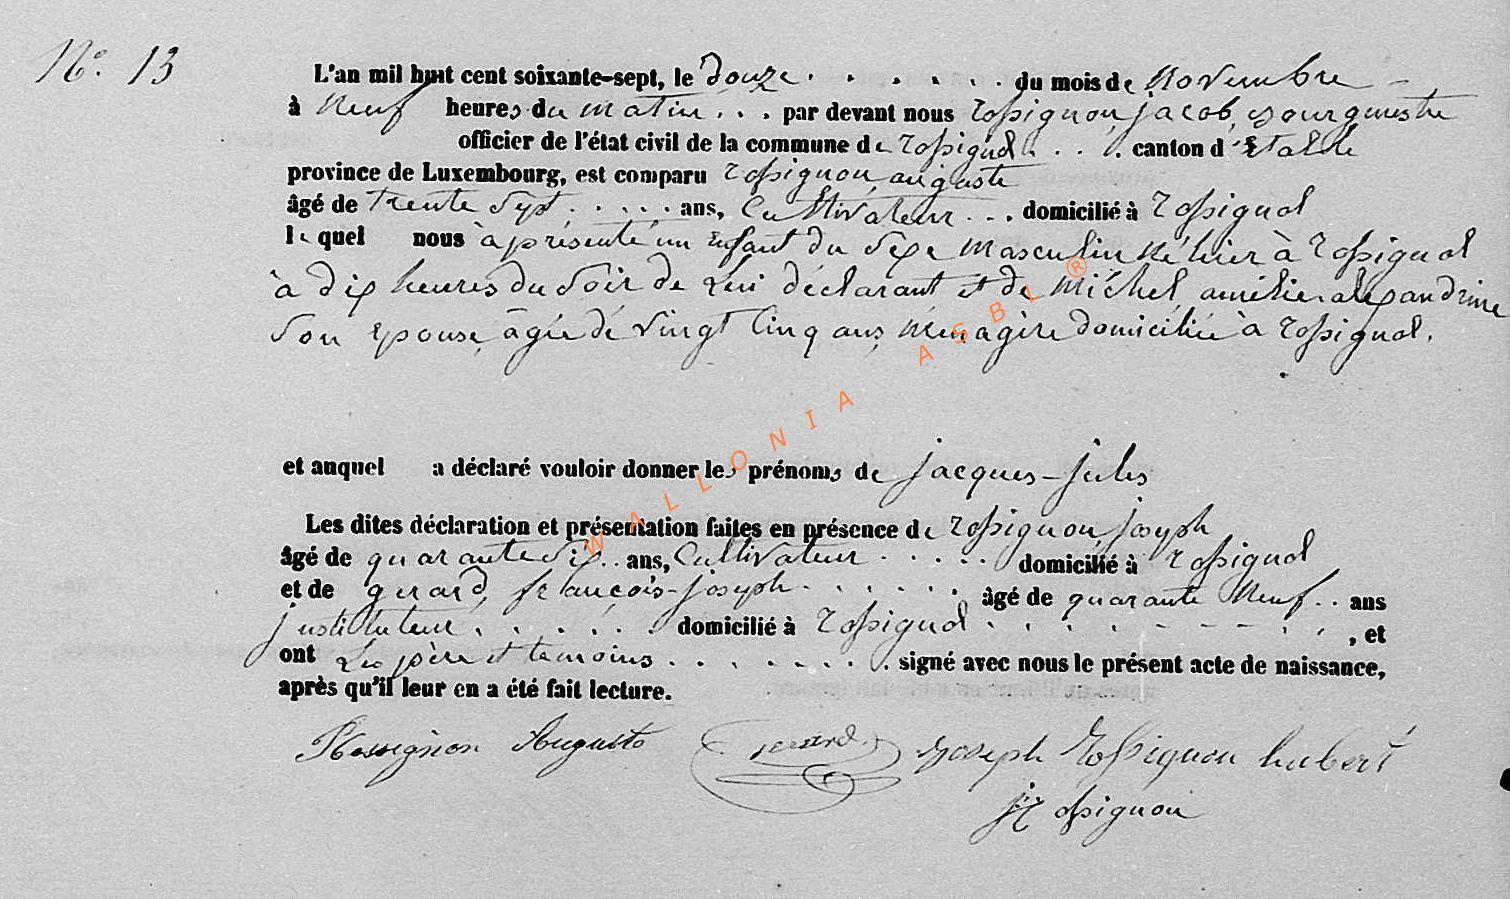 N° 13
L'an mil huit cent soixante-sept, le douze . . . . . . . du mois de Novembre -
à Neuf heures du matin . . . par devant nous rossignon, jacob, Bourgmestre
officier de l'état civil de la commune de rossignol . . . . canton d'Etalle
province de Luxembourg, est comparu rossignon, auguste
âgé de trente Sept . . . . . ans, Cultivateur . . . domicilié à rossignol
le quel nous à présenté un Enfant du Sexe masculin né hier à rossignol
à dix heures du Soir de Lui déclarant et de Michel, amélie alexandrine
Son Epouse, âgée de vingt Cinq ans, Ménagère domiciliée à rossignol.
et auquel a déclaré vouloir donner les prénoms de jacques-jules
Les dites déclaration et présentation faites en présence de rossignon, joseph
âgé de quarante Six . . ans, Cultivateur . . . . . domicilié à rossignol
et de gerard, françois-joseph . . . . . . . âgé de quarante Neuf . . ans
justituteur . . . . . . domicilié à rossignol . . . . - - - . . , et
ont Les père et temoins . . . . . . . . signé avec nous le présent acte de naissance,
après qu'il leur en a été fait lecture.
Rossignon Auguste gerard. joseph rossignon hubert
jrossignon
WALLONIA ASBL ®